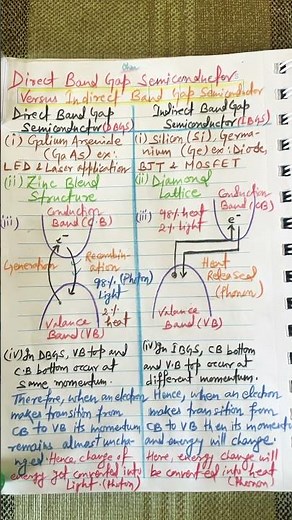 Direct Band Gap Semiconductor
Versus Indirect Band Gap Semiconductor
Direct Band Gap
Semiconductor(DBGS)
(i) Galium Arsenide
(GaAs) ex:
LED & Laser Application
(ii) Zinc Blend
Structure
Conduction
Band (C.B)
(iii)
e-
Generation
Recombin-
ation
98% (Photon)
Light
2%
heat
Valance
Band (VB)
(iv) In DBGS, VB top and
C.B bottom occur at
same momentum.
Therefore, when an electron
makes transition from
CB to VB its momentum
remains almost uncha-
nged. Hence change of
energy get converted into
Light. (Photon)
Indirect Band Gap
Semiconductor(IBGS)
(i) Silicon (Si), Germa-
nium (Ge) ex: Diode,
BJT & MOSFET
(ii) Diamond
Lattice
Conduction
Band (CB)
(iii) 98% heat
2% light
e-
Heat
Released
(Phonon)
Valance
Band (VB)
(iv) In IBGS, CB bottom
and V.B top occur at
different momentum.
Hence, when an electron
makes transition from
CB to VB then its momentum
and energy will change.
Here, energy change will
be converted into heat
(Phonon)